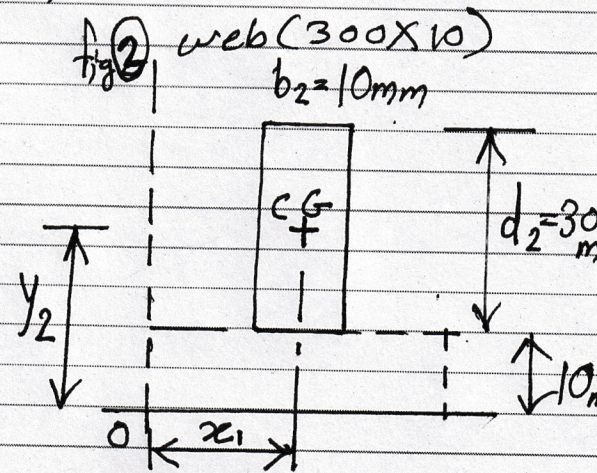 fig② web(300×10)
b₂=10mm
CG
d₂=30
y₂
10
0
x₁